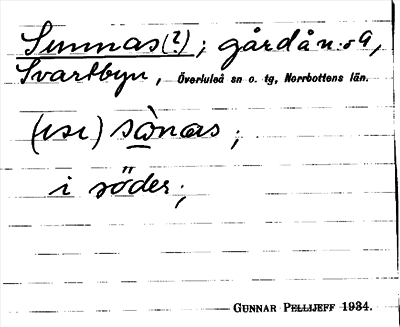 Sunnas(?); gård å n:o 9,
Svartbyn, Överluleå sn o. tg, Norrbottens län.
(usi) sànas;
i söder;
GUNNAR PELLIJEFF 1934.